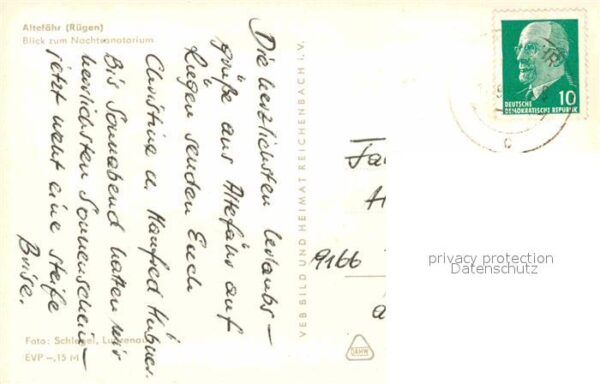 Altefähr (Rügen)
Blick zum Nachtsanatorium
Die herzlichsten Urlaubs-
grüße aus Altefähr auf
Rügen senden Euch
Christine u. Manfred Hübner.
Bis Sonnabend hatten wir
herrlichsten Sonnenschein –
jetzt weht eine steife
Brise.
Foto: Schlegel,
EVP –,15 M
VEB BILD UND HEIMAT REICHENBACH I. V.
DEUTSCHE
DEMOKRATISCHE REPUBLIK
10
Fa
9166
privacy protection
Datenschutz